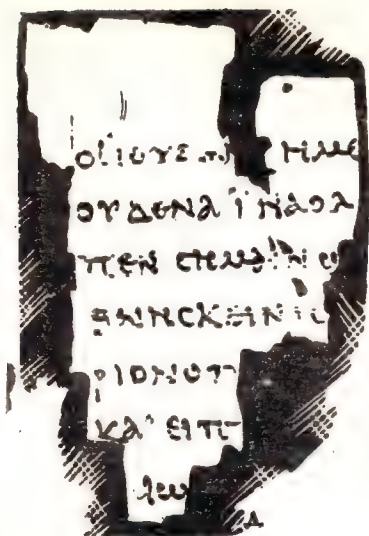 ΟΙ ΙΟΥ ΗΜΕ
ΟΥΔΕΝΑ ΪΝΑ Ο Λ
ΠΕΝ ϹΗΜΑΙΝΩ
ΘΝΗϹΚΕΙΝ ΙϹ
ΡΙΟΝ Ο Π
ΚΑΙ ΕΙΠ